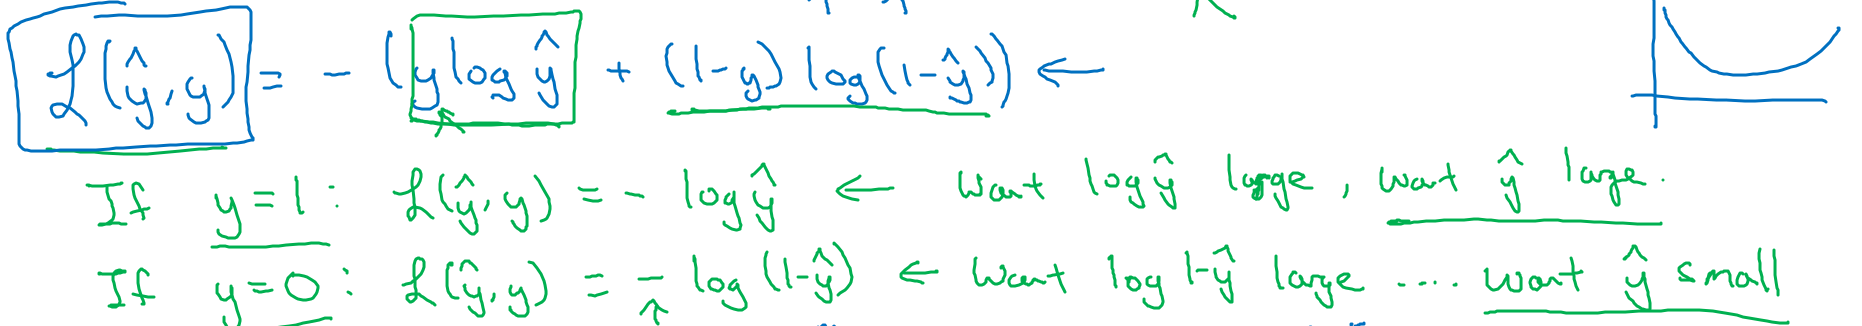 ℒ(ŷ, y) = - (y log ŷ + (1-y) log(1-ŷ)) ←
If y=1: ℒ(ŷ, y) = - log ŷ ← want log ŷ large, want ŷ large.
If y=0: ℒ(ŷ, y) = - log (1-ŷ) ← want log 1-ŷ large .... want ŷ small